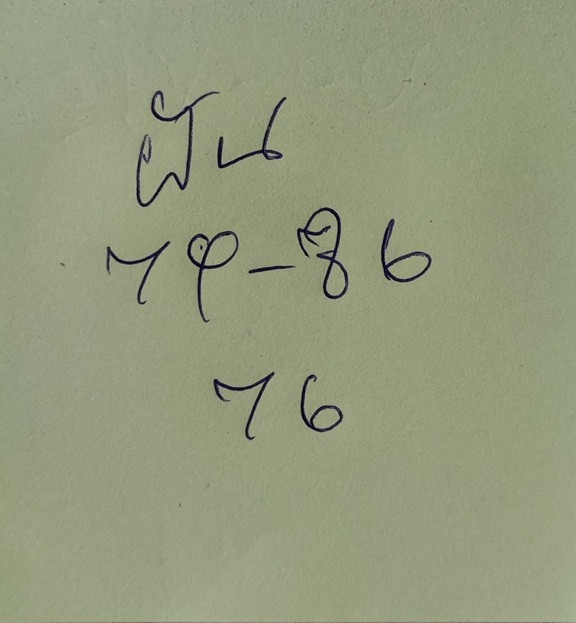 ฝัน
79-86
76